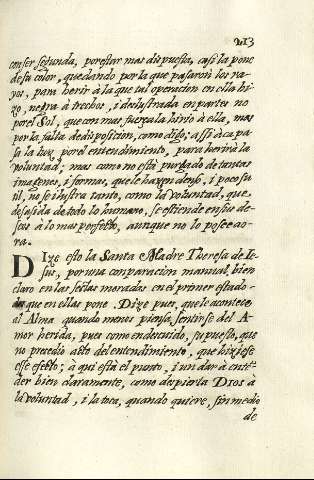 213
con ser segunda, por estar mas dispuesta, casi la pone
de su color, quedando por la que passaron los ra-
yos, para herir à la que tal operacion en ella hi-
zo, negra à trechos, i deslustrada en partes no
por el Sol, que con mas fuerça la hirio à ella, mas
por la falta de disposicion, como digo; assi à ca pa-
sa la luz por el entendimiento, para herir à la
voluntad; mas como no està purgado de tantas
imagenes, i formas, que le hazen denso, i poco su
til, no se ilustra tanto, como la voluntad, que
desasida de todo lo humano, se estiende en sus de-
seos à lo mas perfeto, aunque no lo posee ao-
ra.
DIze esto la Santa Madre Theresa de Ie-
sus, por una conparacion manual, bien
claro en las setimas moradas en el primer estado
que en ellas pone. Dize pues, que le acontece
al Alma quando menos piensa, sentirse del A-
mor herida, pues como endecuido, supuesto, que
no precedio acto del entendimiento, que hiziese
ese efeto; a qui està el punto, i un dar à ente-
der bien claramente, como despierta Dios à
la voluntad, i la toca, quando quiere, sin medio
de